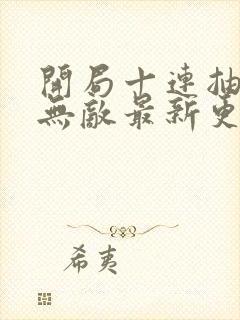 開局十連抽
無敵最新更
希夷